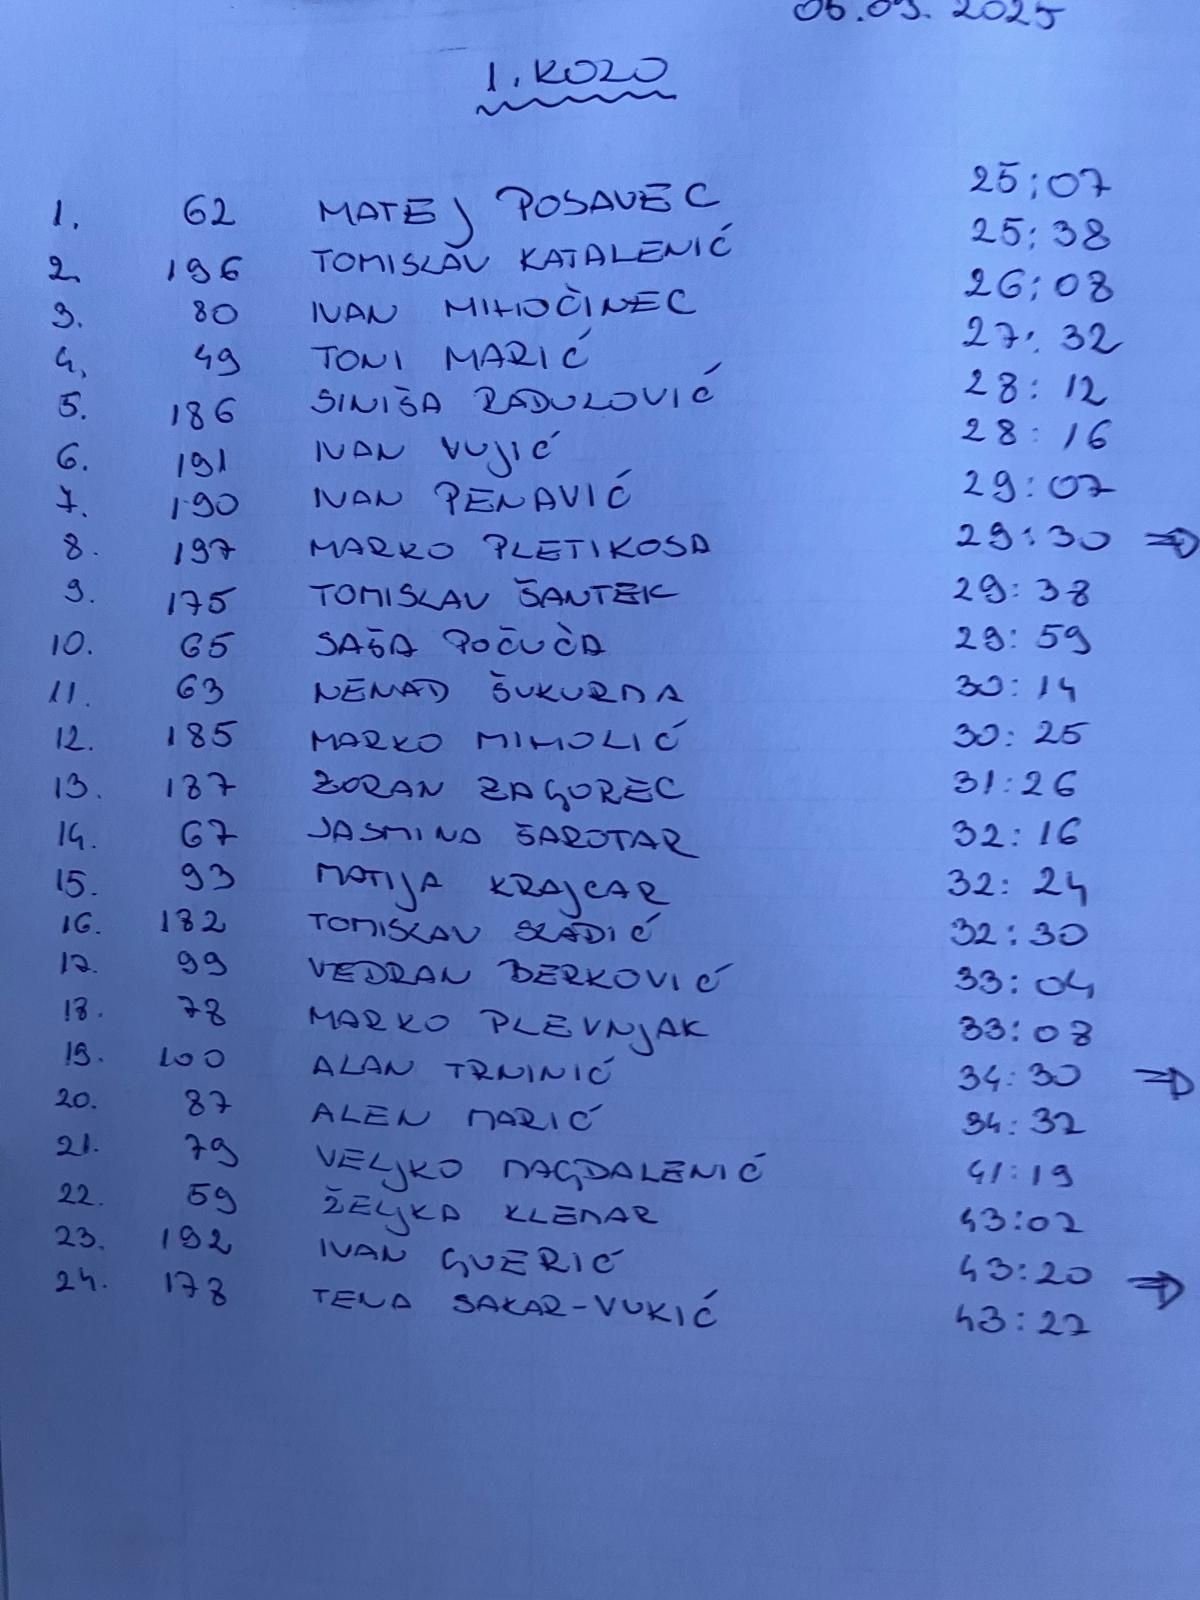 06.09. 2025
1. KOLO
1. 62 MATEJ POSAVEC 25:07
2. 196 TOMISLAV KATALENIĆ 25:38
3. 80 IVAN MIHOČINEC 26:08
4. 49 TONI MARIĆ 27:32
5. 186 SINIŠA RADULOVIĆ 28:12
6. 191 IVAN VUJIĆ 28:16
7. 190 IVAN PENAVIĆ 29:07
8. 197 MARKO PLETIKOSA 29:30 ⇒
9. 175 TOMISLAV ŠANTEK 29:38
10. 65 SAŠA POČUČA 29:59
11. 63 NENAD ŠUKURMA 30:14
12. 185 MARKO MIHOLIĆ 30:25
13. 187 ZORAN ZAGOREC 31:26
14. 67 JASMINA ŠAROTAR 32:16
15. 93 MATIJA KRAJCAR 32:24
16. 182 TOMISLAV SLADIĆ 32:30
17. 99 VEDRAN BERKOVIĆ 33:04
18. 78 MARKO PLEVNJAK 33:08
19. 100 ALAN TRNINIĆ 34:30 ⇒
20. 87 ALEN MARIĆ 34:32
21. 79 VELJKO MAGDALENIĆ 41:19
22. 59 ŽELJKA KLEMAR 43:07
23. 192 IVAN GVERIĆ 43:20 ⇒
24. 178 TENA SAKAR-VUKIĆ 43:27